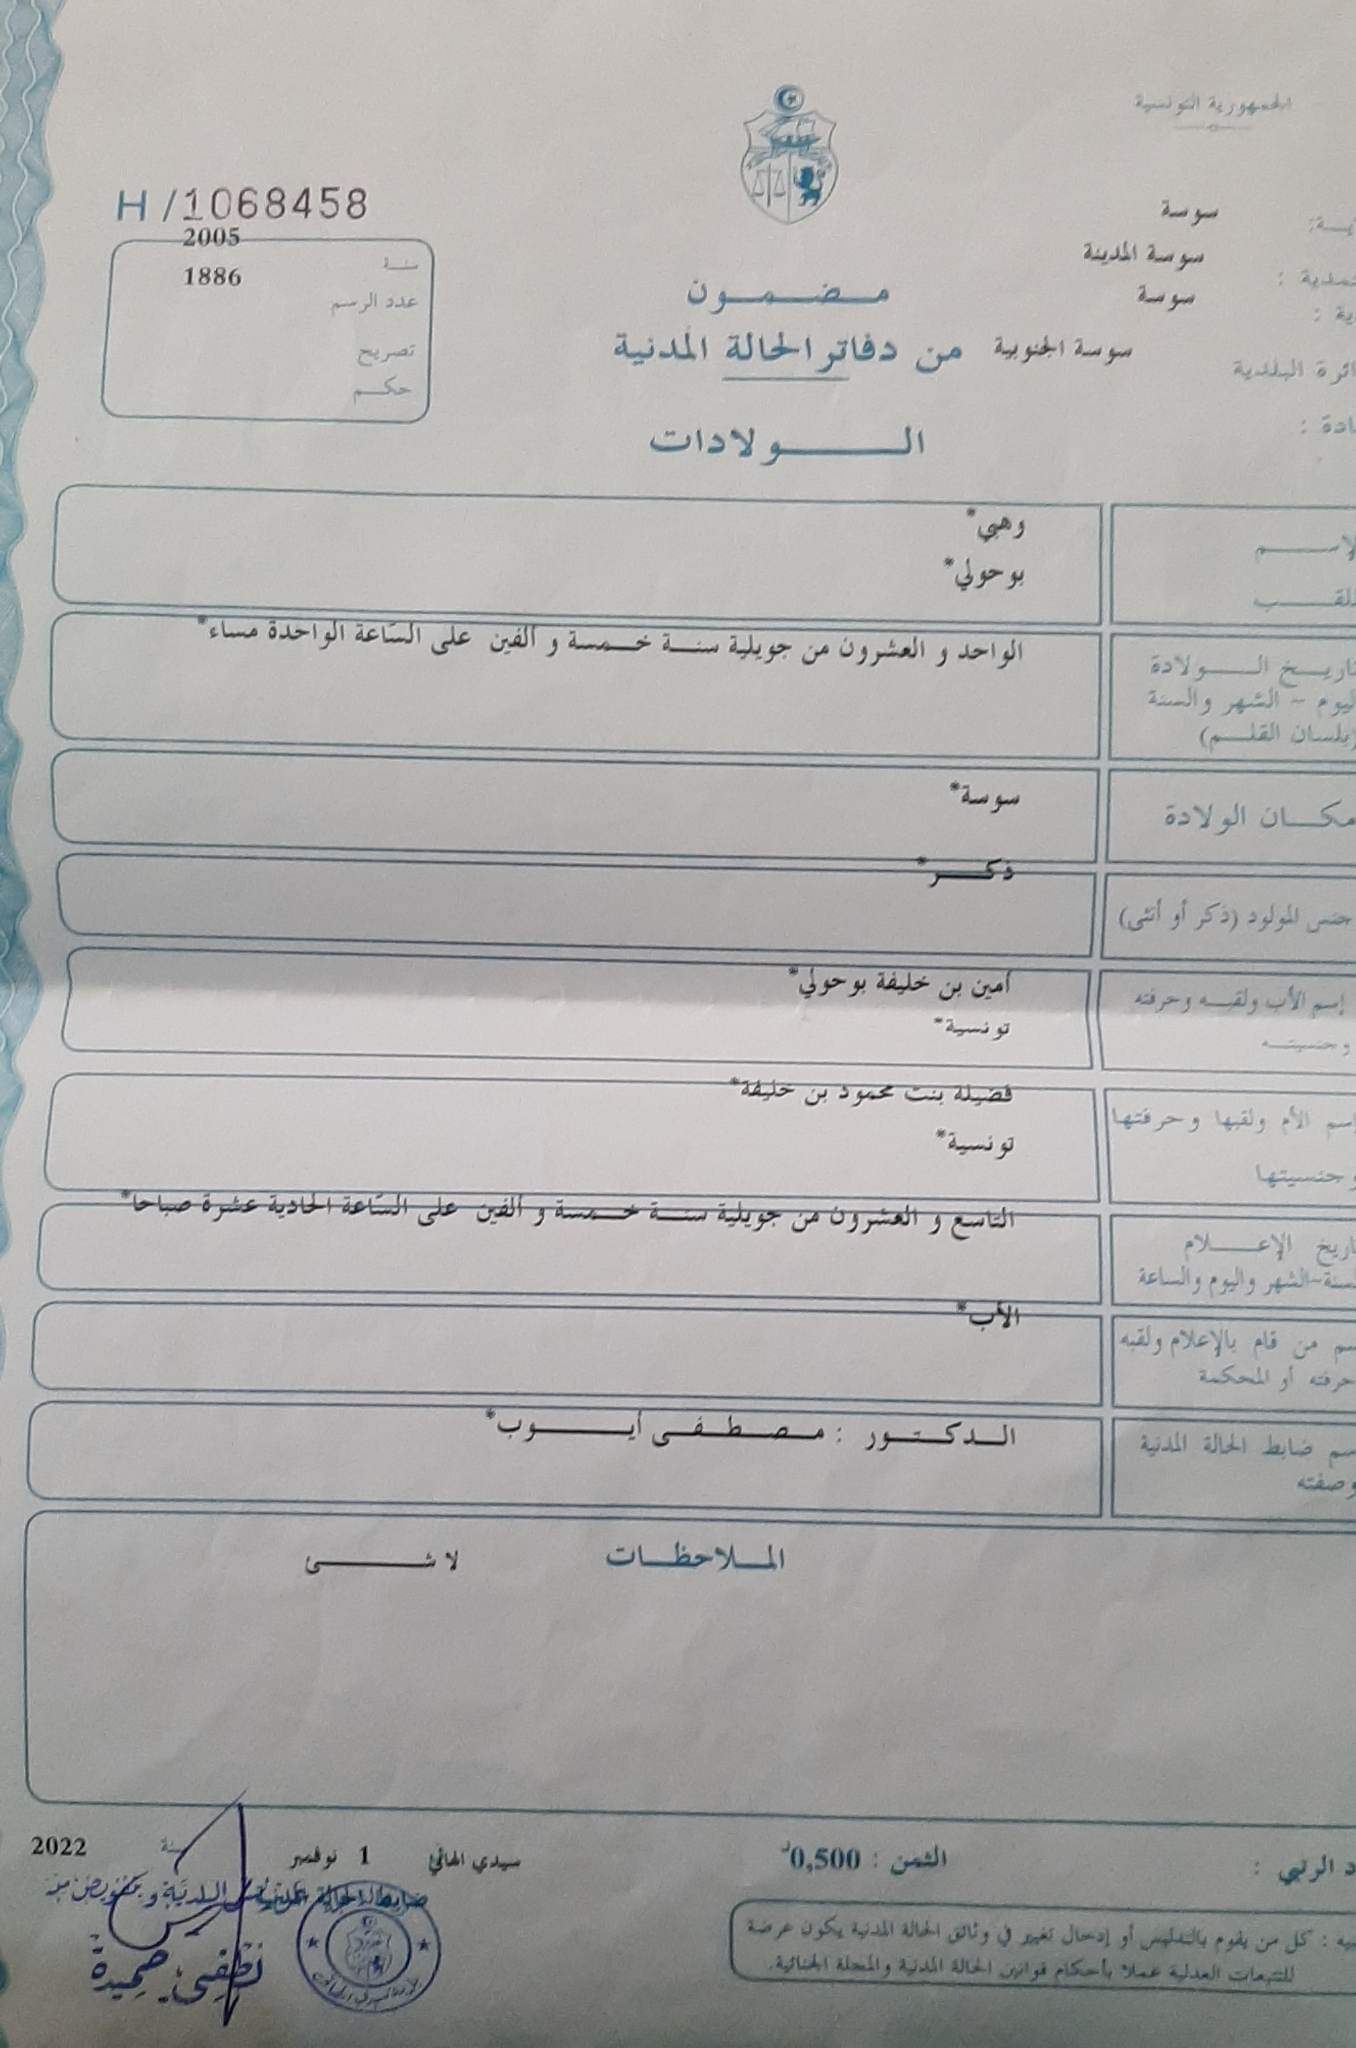 الجمهورية التونسية
H/1068458
سوسة
سوسة المدينة
سوسة
ائرة البلدية سوسة الجنوبية
سنة 2005
عدد الرسم 1886
تصريح
حكم
مضمون
من دفاتر الحالة المدنية
الولادات
الإسم وهبي*
اللقب بوحولي*
تاريخ الولادة الواحد و العشرون من جويلية سنة خمسة و ألفين على السّاعة الواحدة مساء*
اليوم - الشهر والسنة
(بلسان القلم)
مكان الولادة سوسة*
جنس المولود (ذكر أو أنثى) ذكر*
إسم الأب ولقبه وحرفته أمين بن خليفة بوحولي*
وجنسيته تونسية*
إسم الأم ولقبها وحرفتها فضيلة بنت محمود بن خليفة*
وجنسيتها تونسية*
تاريخ الإعلام التاسع و العشرون من جويلية سنة خمسة و ألفين على السّاعة الحادية عشرة صباحا*
السنة-الشهر واليوم والساعة
سم من قام بالإعلام ولقبه الأب*
حرفته أو المحكمة
سم ضابط الحالة المدنية الدكتور : مصطفى أيوب*
وصفته
الملاحظات لا شئ
د الرتبي : الثمن : 0,500د
سيدي الهاني 1 نوفمبر سنة 2022
ضابط الحالة المدنية
يه : كل من يقوم بالتدليس أو إدخال تغيير في وثائق الحالة المدنية يكون عرضة
للتتبعات العدلية عملا بأحكام قوانين الحالة المدنية والمجلة الجنائية.